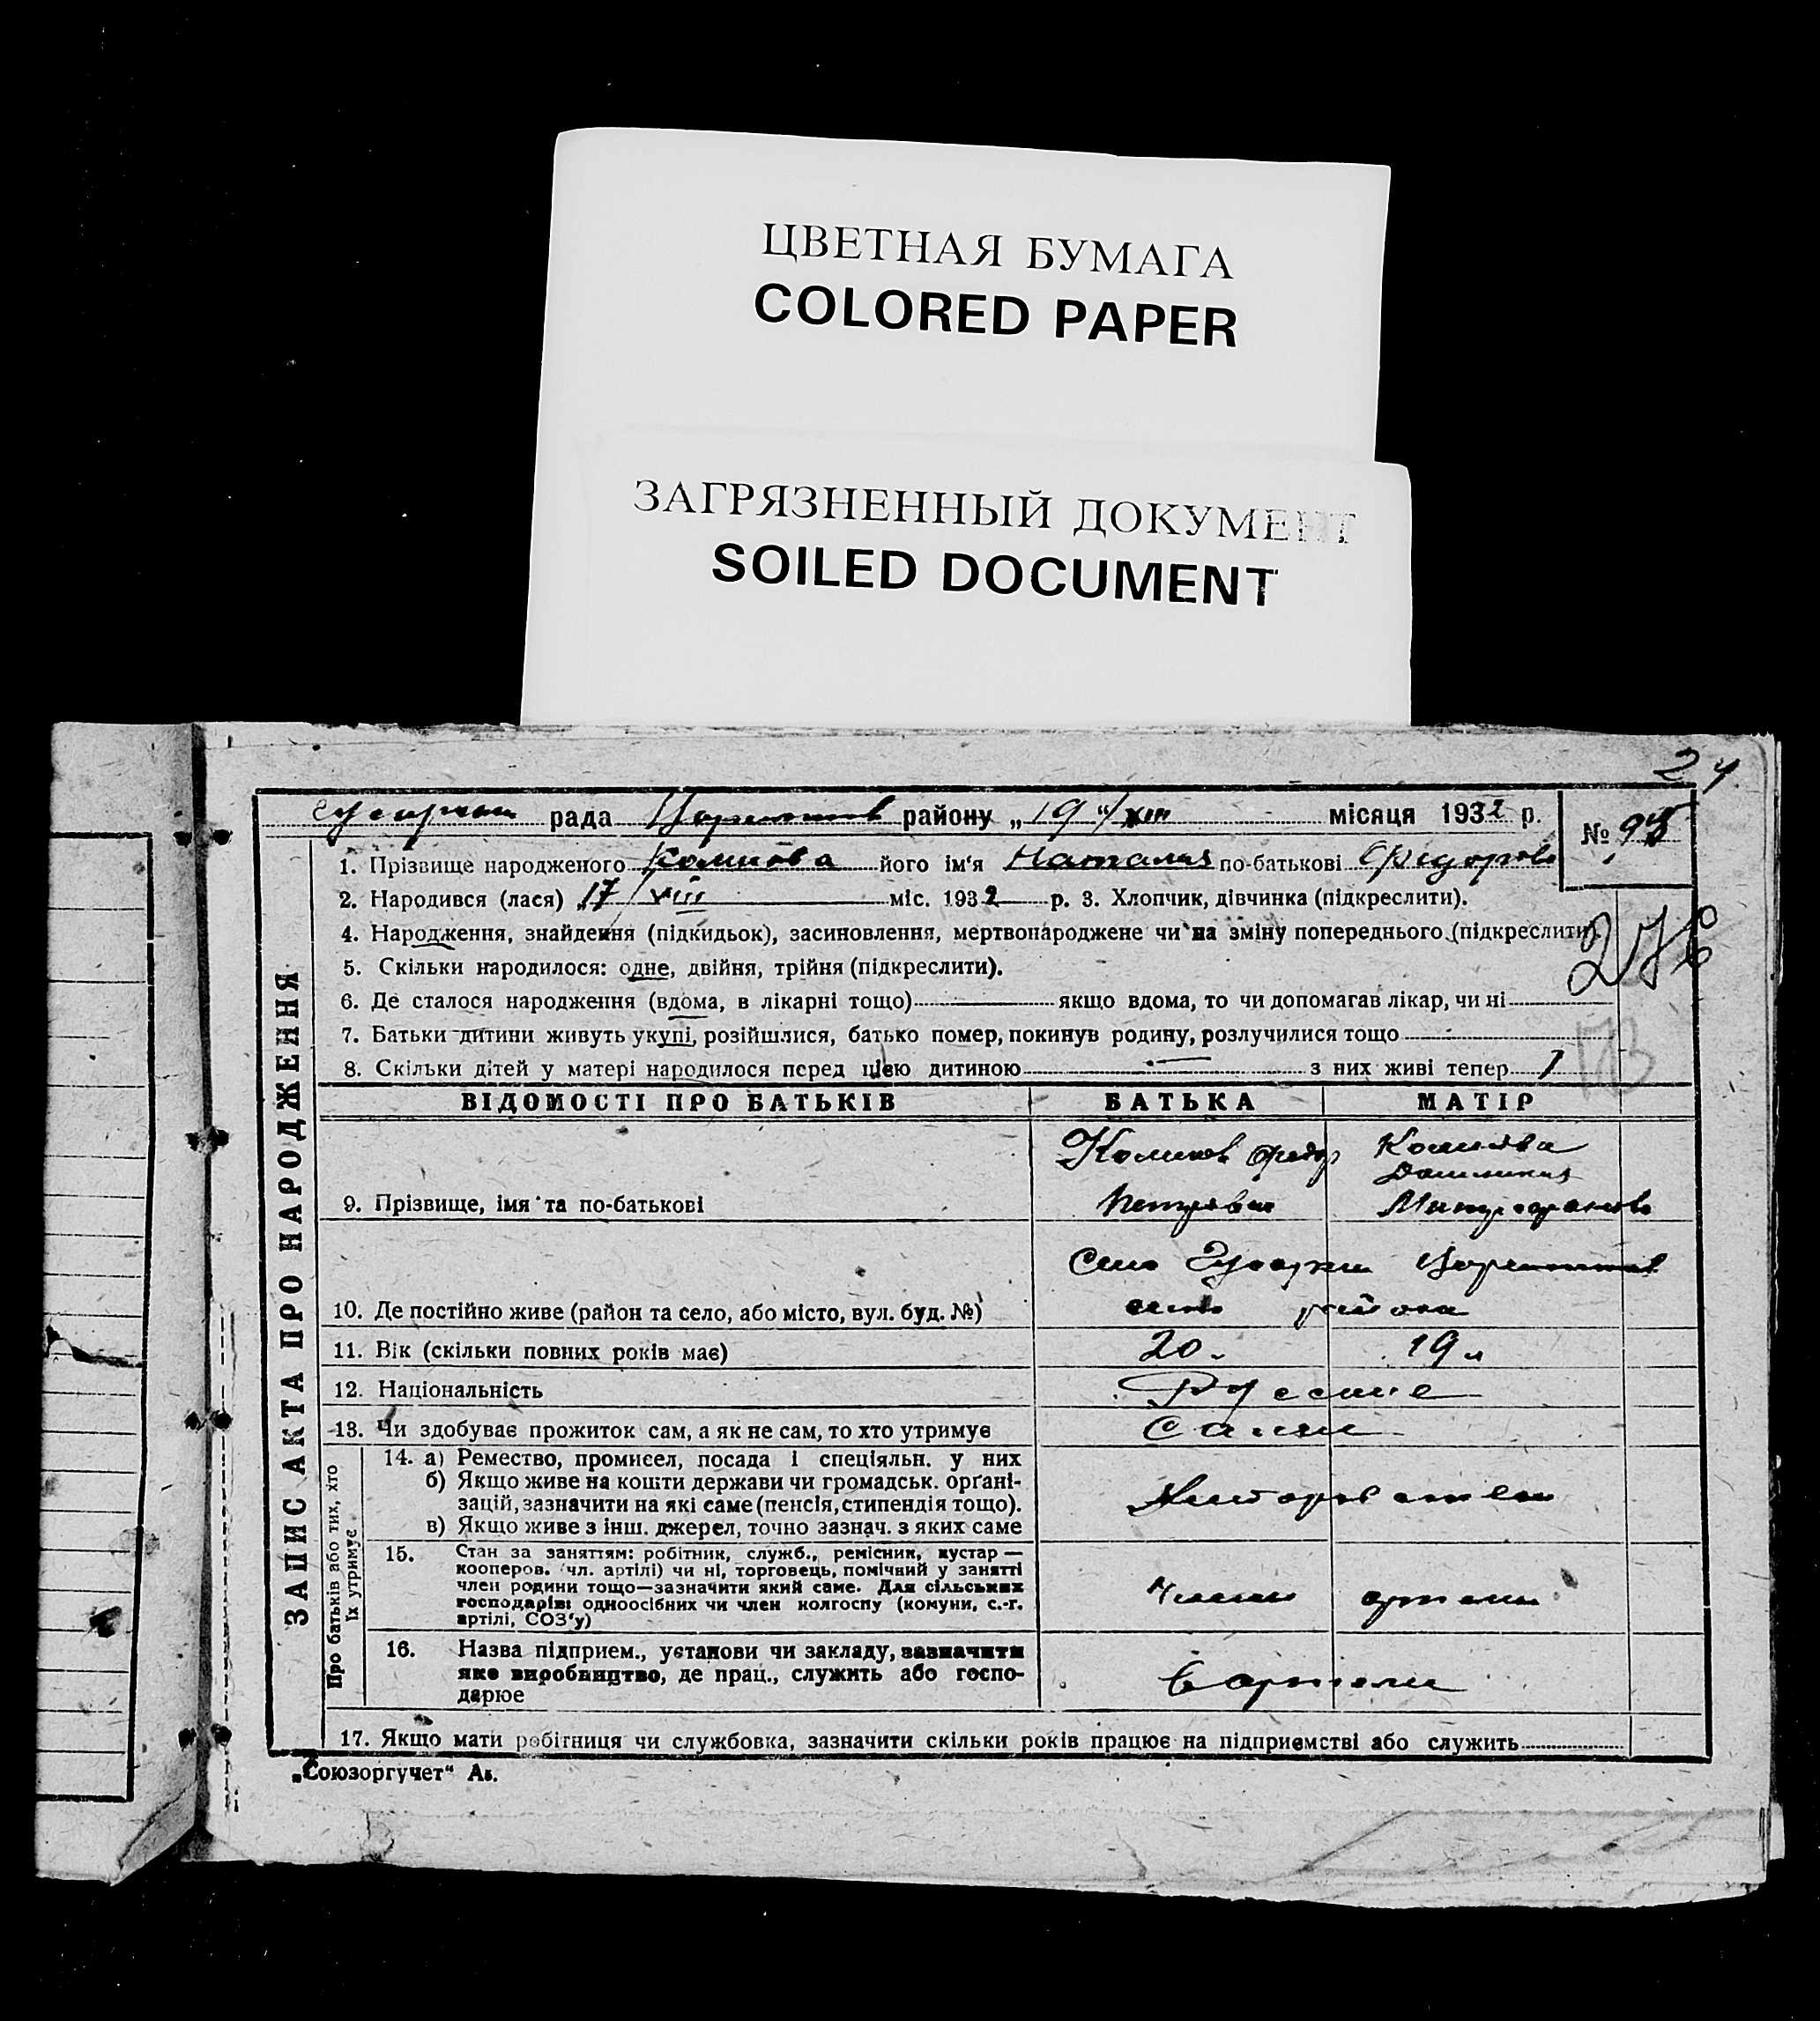 ЦВЕТНАЯ БУМАГА
COLORED PAPER
ЗАГРЯЗНЕННЫЙ ДОКУМЕНТ
SOILED DOCUMENT
24
рада району „19“/VIII місяця 1932 р. № 98
ЗАПИС АКТА ПРО НАРОДЖЕННЯ
1. Прізвище народженого його ім'я Наталия по-батькові Федоров
2. Народився (лася) 17/VIII міс. 1932 р. 3. Хлопчик, дівчинка (підкреслити).
4. Народження, знайдення (підкидьок), засиновлення, мертвонароджене чи на зміну попереднього (підкреслити).
5. Скільки народилося: одне, двійня, трійня (підкреслити).
6. Де сталося народження (вдома, в лікарні тощо) якщо вдома, то чи допомагав лікар, чи ні
7. Батьки дитини живуть укупі, розійшлися, батько помер, покинув родину, розлучилися тощо
8. Скільки дітей у матері народилося перед цією дитиною — з них живі тепер 1
173
ВІДОМОСТІ ПРО БАТЬКІВ БАТЬКА МАТІР
Федор
9. Прізвище, імя та по-батькові Петрович Митрофанов
Село
10. Де постійно живе (район та село, або місто, вул. буд. №) района
11. Вік (скільки повних років має) 20 19 л
12. Національність Русские
13. Чи здобуває прожиток сам, а як не сам, то хто утримує Сами
Про батьків або тих, хто їх утримує
14. а) Ремество, промисел, посада і спеціяльн. у них
б) Якщо живе на кошти держави чи громадськ. орґані-
зацій, зазначити на які саме (пенсія, стипендія тощо).
в) Якщо живе з інш. джерел, точно зазнач. з яких саме
15. Стан за заняттям: робітник, служб., ремісник, кустар —
кооперов. чл. артілі) чи ні, торговець, помічний у занятті
член родини тощо—зазначити який саме. Для сільських
господарів: одноосібних чи член колгоспу (комуни, с.-г.
артілі, СОЗ'у)
Члени артели
16. Назва підприем., установи чи закладу, зазначити
яке виробництво, де прац., служить або госпо-
дарює
В артели
17. Якщо мати робітниця чи службовка, зазначити скільки років працює на підприємстві або служить
„Союзоргучет“